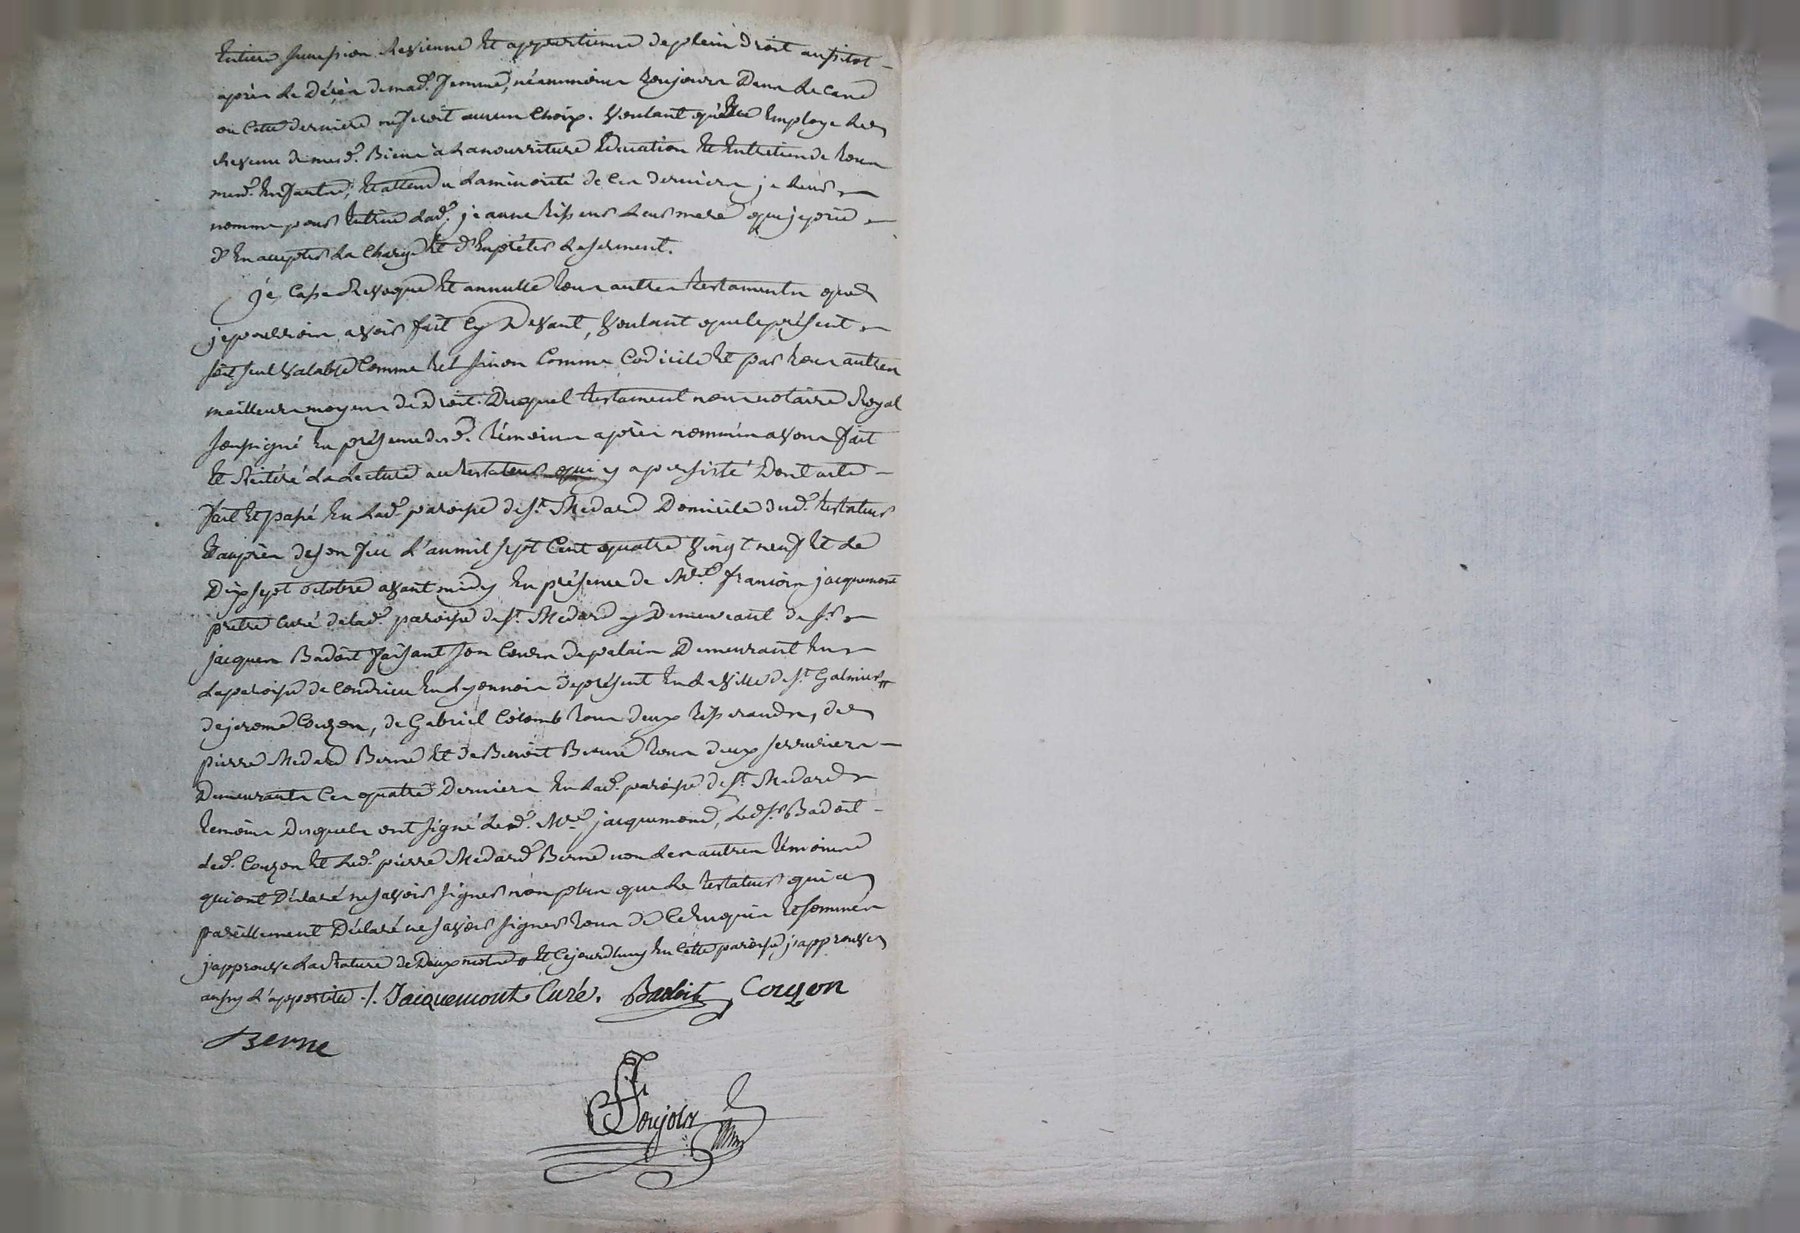 Entiere succession Revienne Et appartienne de plein droit aussitot
après Le Décès de mad.^e femme, néanmoins toujours Dans Le cas
ou Cette derniere ne feroit aucun Choix. Voulant qu'Elle Employe Les
Revenus de mesd.^s Biens à La nourriture Education Et Entretien de tous
mesd.^s Enfants, Et attendu La minorité de Ces derniers je Leur
nomme pour tutrice Lad.^e jeanne leur mere que je prie
d'En accepter La Charge Et d'En prêter Le serment.
Je Casse Revoque Et annulle tous autres testaments que
je pourrois avoir fait Cy Devant, Voulant que le présent
soit seul Valable Comme tel sinon Comme Codicile Et par tous autres
meilleurs moyens de Droit. Duquel testament nous notaire Royal
soussigné En présence des d.^s témoins après nommés avons fait
Et Réitéré La Lecture au testateur qui y a persisté Dont acte
fait Et passé En Lad.^e paroisse de S.^t Medard Domicile dud.^t testateur
Et auprès de son feu L'an mil sept Cent quatre Vingt neuf Et Le
Dix sept octobre avant midy En présence de M.^re françois jacquemont
prêtre Curé de Lad.^e paroisse de S.^t Medard y Demeurant de S.^r
jacques Badoit faisant son Cours de palais Demeurant En
La paroisse de Condrieu En Lyonnois de présent En La Ville de S.^t Galmier
de jerome Couzon, de Gabriel Colomb tous deux tisserands, de
pierre Medard Berne Et de Benoit Berne tous deux serruriers
Demeurants Ces quatre Derniers En Lad.^e paroisse de S.^t Medard
temoins Desquels ont signé Led.^t M.^re jacquemond, Led. S.^r Badoit
Led.^t Couzon Et Led.^t pierre Medard Berne non Les autres témoins
qui ont Déclaré ne savoir signer non plus que Le testateur qui a
pareillement Déclaré ne savoir signer tous de Ce Enquis Et sommés
j'approuve La Rature de Deux mots Et Cejourdhuy En Cette paroisse j'approuve
aussy L'apostille ./. Jacquemont Curé. Badoit Couzon
Berne
Poujols